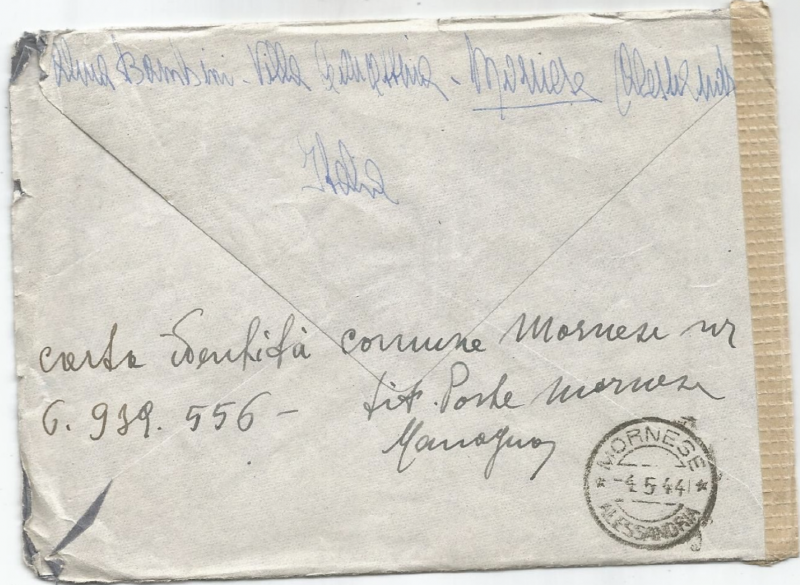 Alma Bambini - Villa - Mornese (Alessandria
Italia
carta identità comune Mornese nr
6.939.556 - tit. Poste Mornese
MORNESE
-4.5.44
ALESSANDRIA